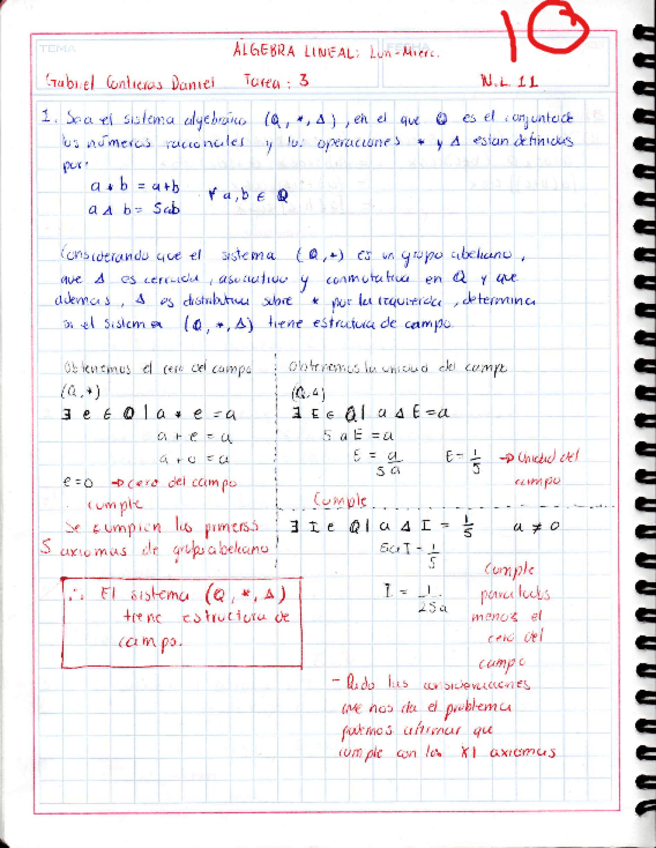 10
TEMA
ALGEBRA LINEAL: Lun-Mierc.
FECHA
Gabriel Contreras Daniel Tarea: 3 N.L. 11
1. Sea el sistema algebraico (Q, *, Δ), en el que Q es el conjunto de
los números racionales y las operaciones * y Δ estan definidas
por:
a * b = a+b
∀ a,b ∈ Q
a Δ b = 5ab
Considerando que el sistema (Q,*) es un grupo abeliano,
que Δ es cerrada, asociativa y conmutativa en Q y que
además, Δ es distributiva sobre * por la izquierda, determina
si el sistema (Q, *, Δ) tiene estrutura de campo.
Obtenemos el cero del campo
(Q,*)
∃ e ∈ Q | a * e = a
a + e = a
a + 0 = a
e = 0 → cero del campo
cumple
Se cumplen los primeros
5 axiomas de grupo abeliano
∴ El sistema (Q, *, Δ)
tiene estructura de
campo.
Obtenemos la unidad del campo
(Q,Δ)
∃ E ∈ Q | a Δ E = a
5 a E = a
E = a/5a E = 1/5 → Unidad del
campo
Cumple
∃ I ∈ Q | a Δ I = 1/5 a ≠ 0
5aI = 1/5
I = 1/25a
Cumple
para todos
menos el
cero del
campo
- Dado las consideraciones
que nos da el problema
afirmar que
cumple con los XI axiomas